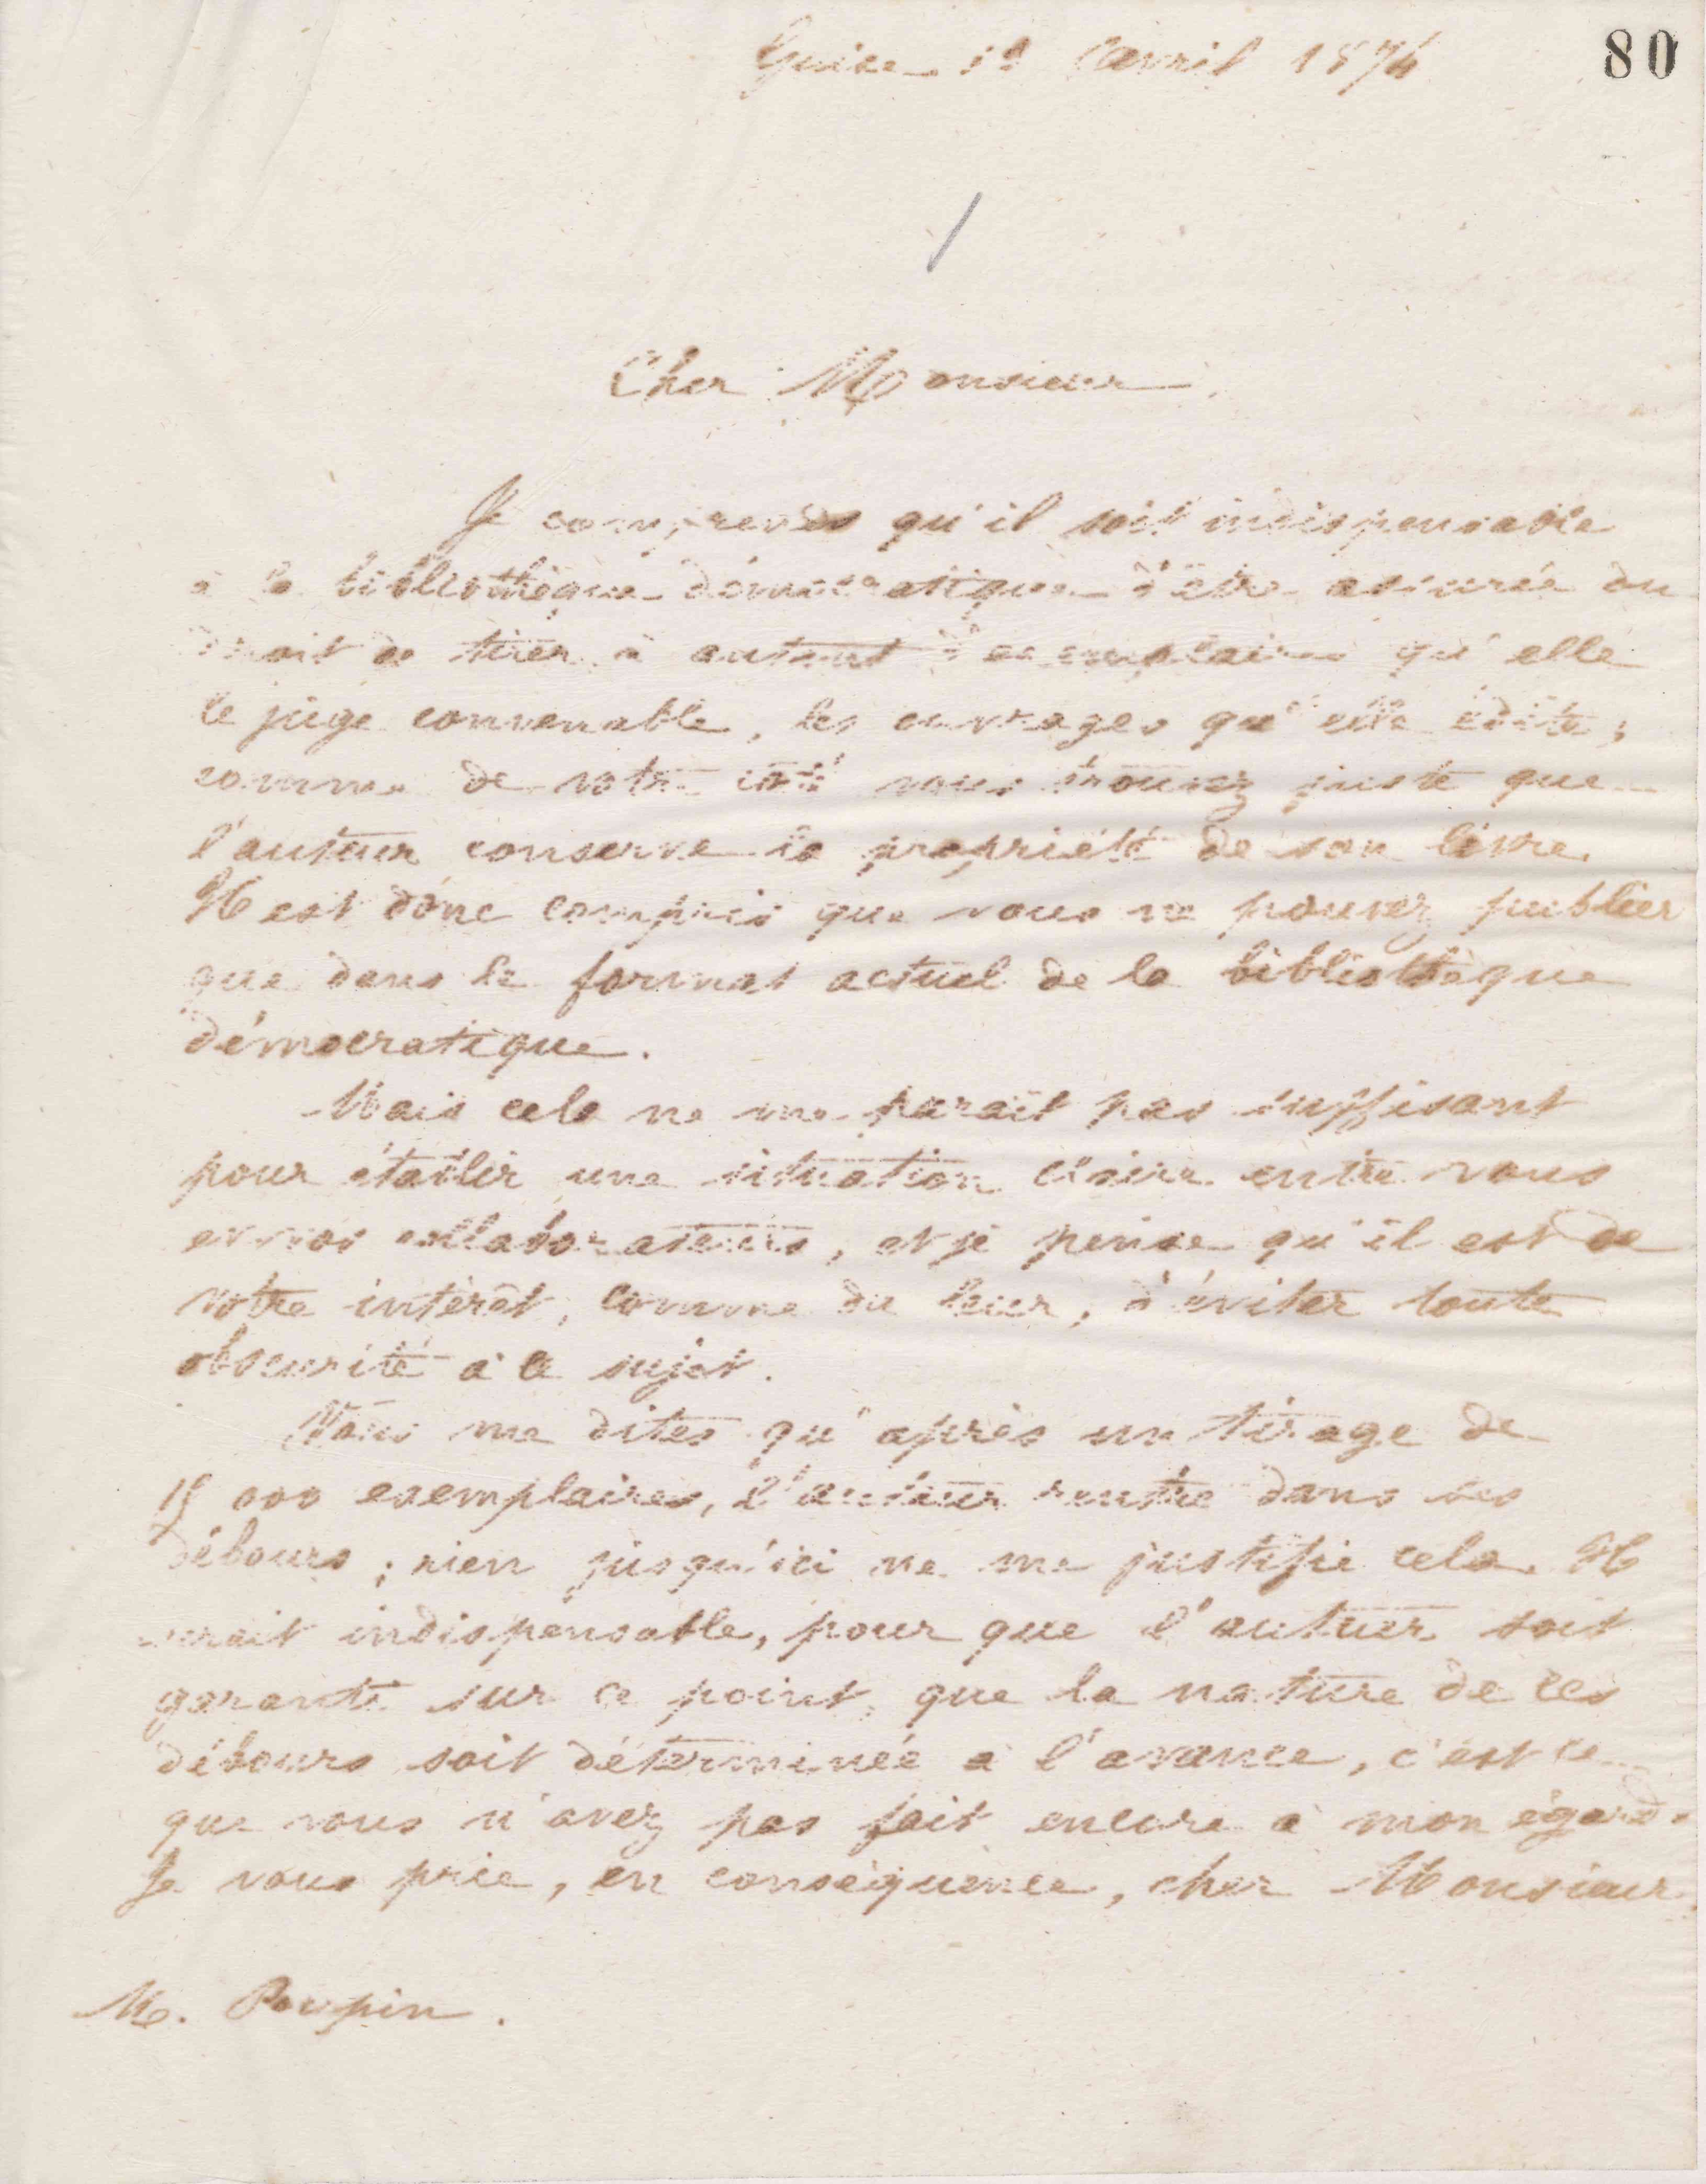 80
Guise Avril 1874
Cher Monsieur,
Je comprends qu'il soit indispensable
à la bibliothèque démocratique d'être assurée du
droit de tirer à autant d'exemplaires qu'elle
le juge convenable, les ouvrages qu'elle édite,
comme de votre côté vous trouvez juste que
l'auteur conserve la propriété de son livre.
Il est donc compris que vous ne pouvez publier
que dans le format actuel de la bibliothèque
démocratique.
Mais cela ne me paraît pas suffisant
pour établir une situation claire entre vous
et vos collaborateurs, et je pense qu'il est de
votre intérêt, comme du leur, d'éviter toute
obscurité à ce sujet.
Vous me dites qu'après un tirage de
000 exemplaires, l'auteur rentre dans ses
débours ; rien jusqu'ici ne me justifie cela. Il
serait indispensable, pour que l'auteur soit
garanti sur ce point, que la nature de ces
débours soit déterminée à l'avance, c'est ce
que vous n'avez pas fait encore à mon égard.
Je vous prie, en conséquence, cher Monsieur,
M. Poupin.